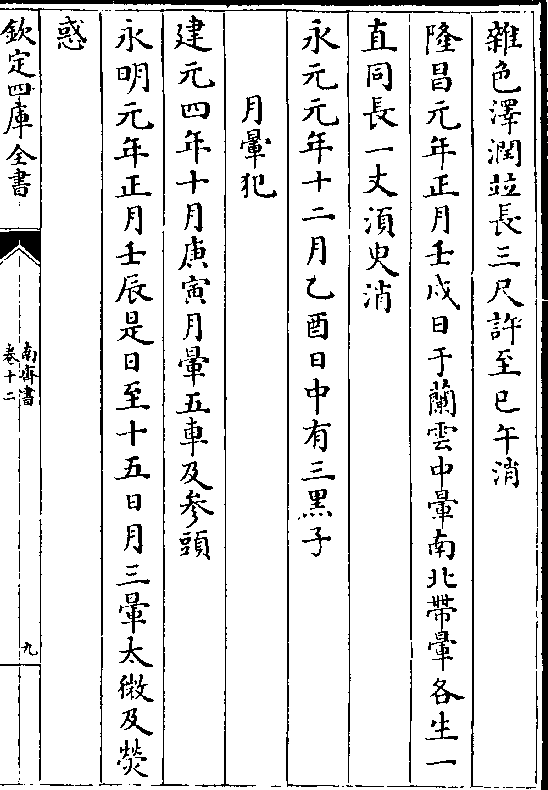 雜色澤潤竝長三尺許至巳午消
隆昌元年正月壬戌日于蘭雲中暈南北帶暈各生一
直同長一丈須臾消
永元元年十二月乙酉日中有三黑子
月暈犯
建元四年十月庚寅月暈五車及参頭
永明元年正月壬辰是日至十五日月三暈太微及熒
惑
欽定四庫全書
南齊書
卷十二
九